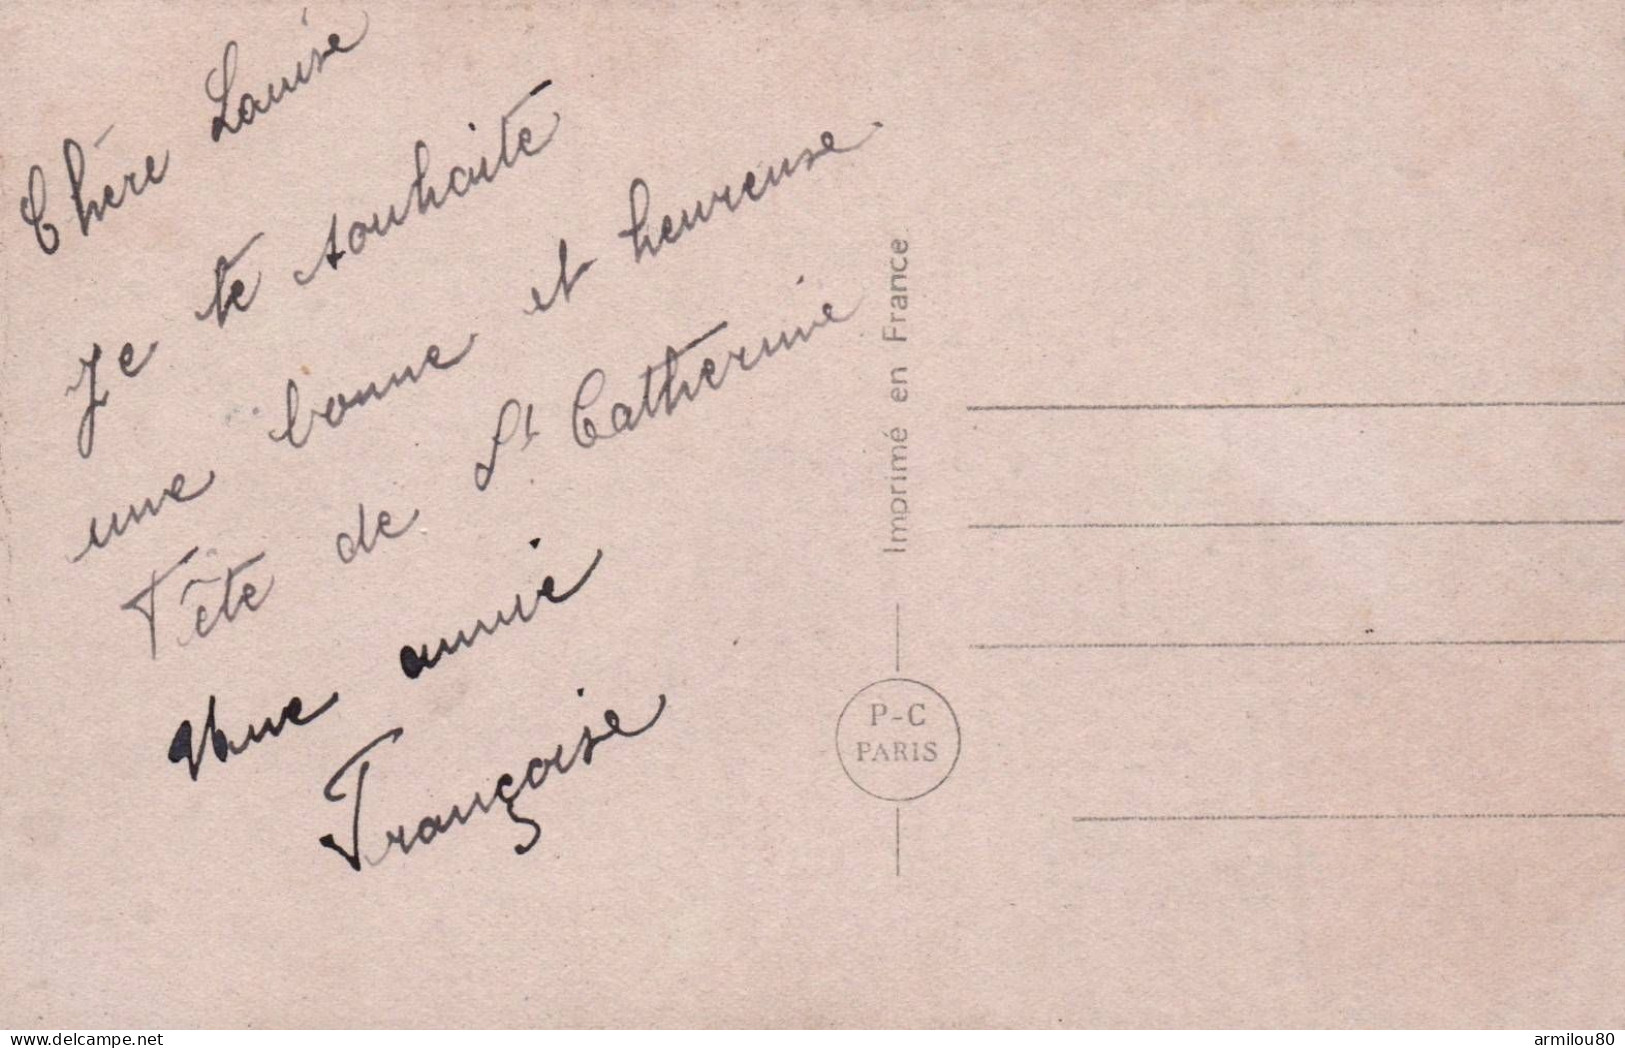 Chère Louise
Je te souhaite
une bonne et heureuse
Fête de St Catherine
Une amie
Françoise
Imprimé en France
P-C
PARIS
armilou80